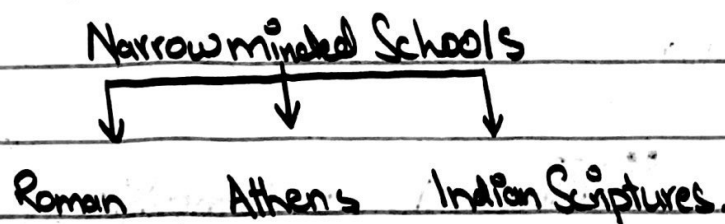 Narrowminded Schools
Roman Athens Indian Scriptures